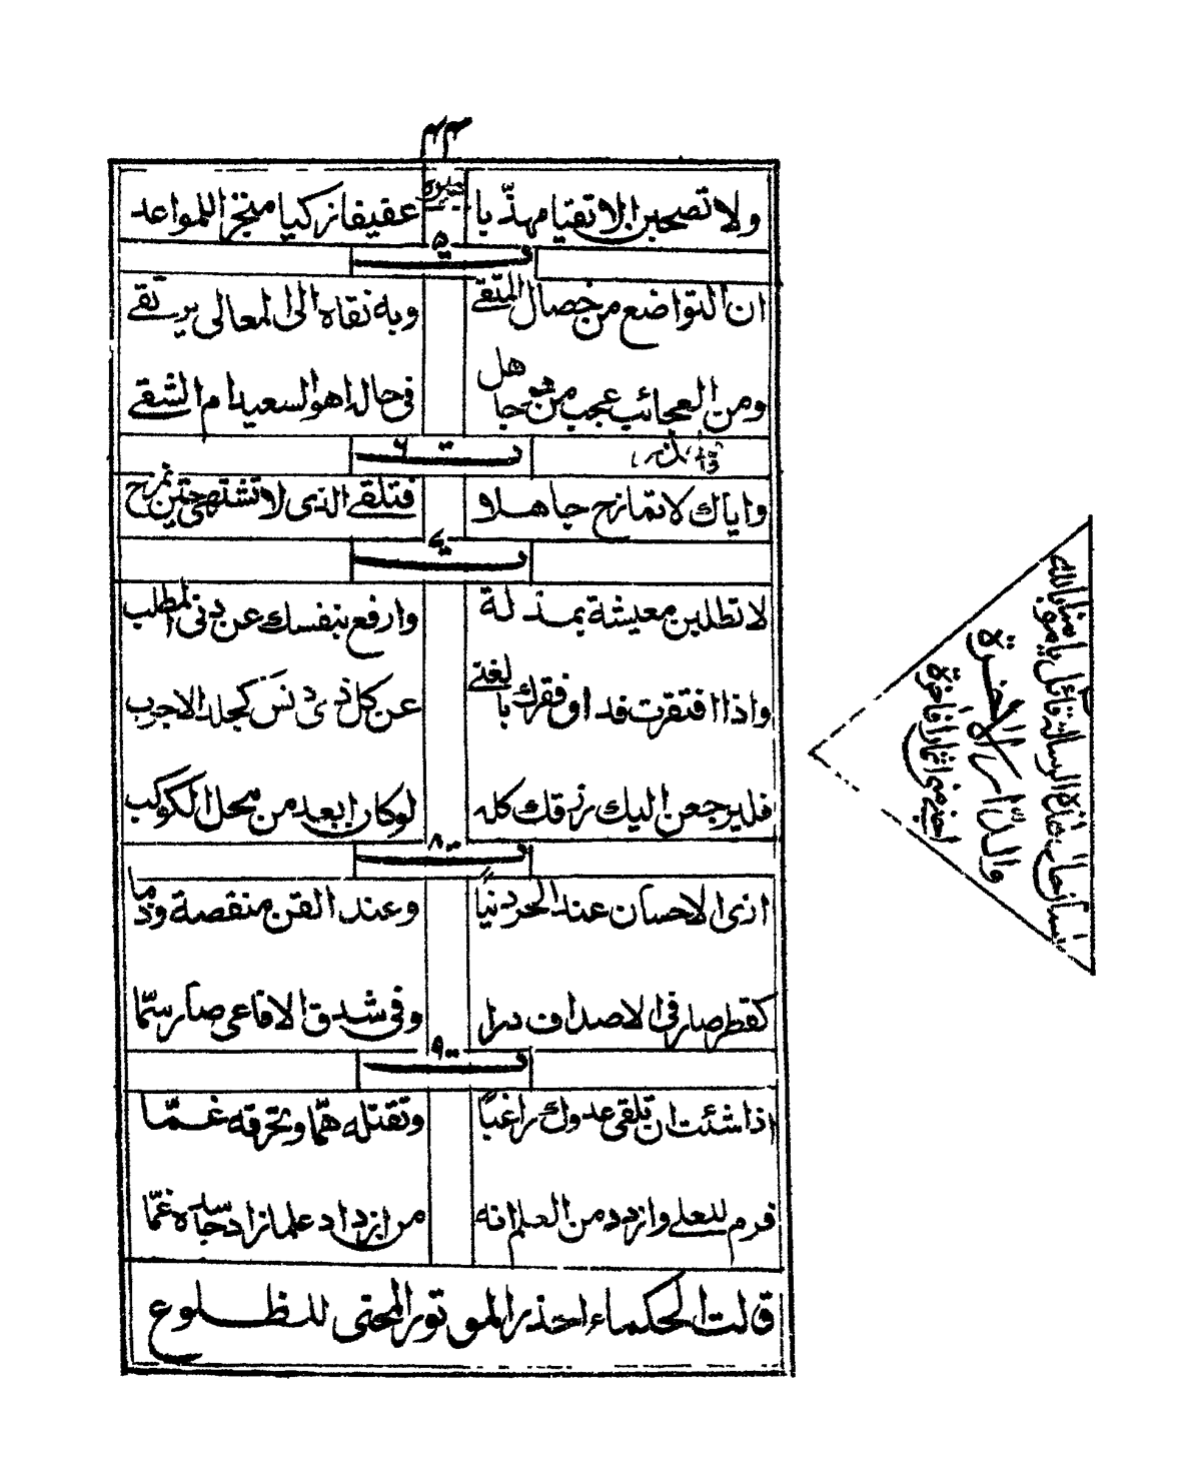 ٤٤
ولا تصحبن الا تقيا مهذبا عفيفا زكيا منجزا للمواعد
ت ٥
ان التواضع من خصال المتقي وبه تقاه الى المعالي يرتقي
ومن العجائب عجب من هو جاهل في حاله اهو السعيد ام الشقي
ت ٦
واياك لا تمازح جاهلا فتلقى الذى لا تشتهى حين تمزح
ت ٧
لا تطلبن معيشة بمذلة وارفع بنفسك عن دنى المطلب
واذا افتقرت فداو فقرك بالغنى عن كل ذى دنس كجلد الاجرب
فليرجعن اليك رزقك كله لو كان ابعد من محل الكوكب
ت ٨
ارى الاحسان عند الحر دنيا وعند القن منقصة وذما
كقطر صار فى الاصداف درا وفى شدق الافاعى صار سما
ت ٩
اذا شئت ان تلقى عدوك راغبا وتقتله هما وتحرقه غما
فرم للعلى وازدد من العلم انه من ازداد علما زاد حاسده غما
قالت الحكماء احذر الموتور المحتى للظلوع
لسان حال هذه الرسالة قائل يا مؤمنا بالله
والدار الاخرة
اجن منى اثمارا فاخرة